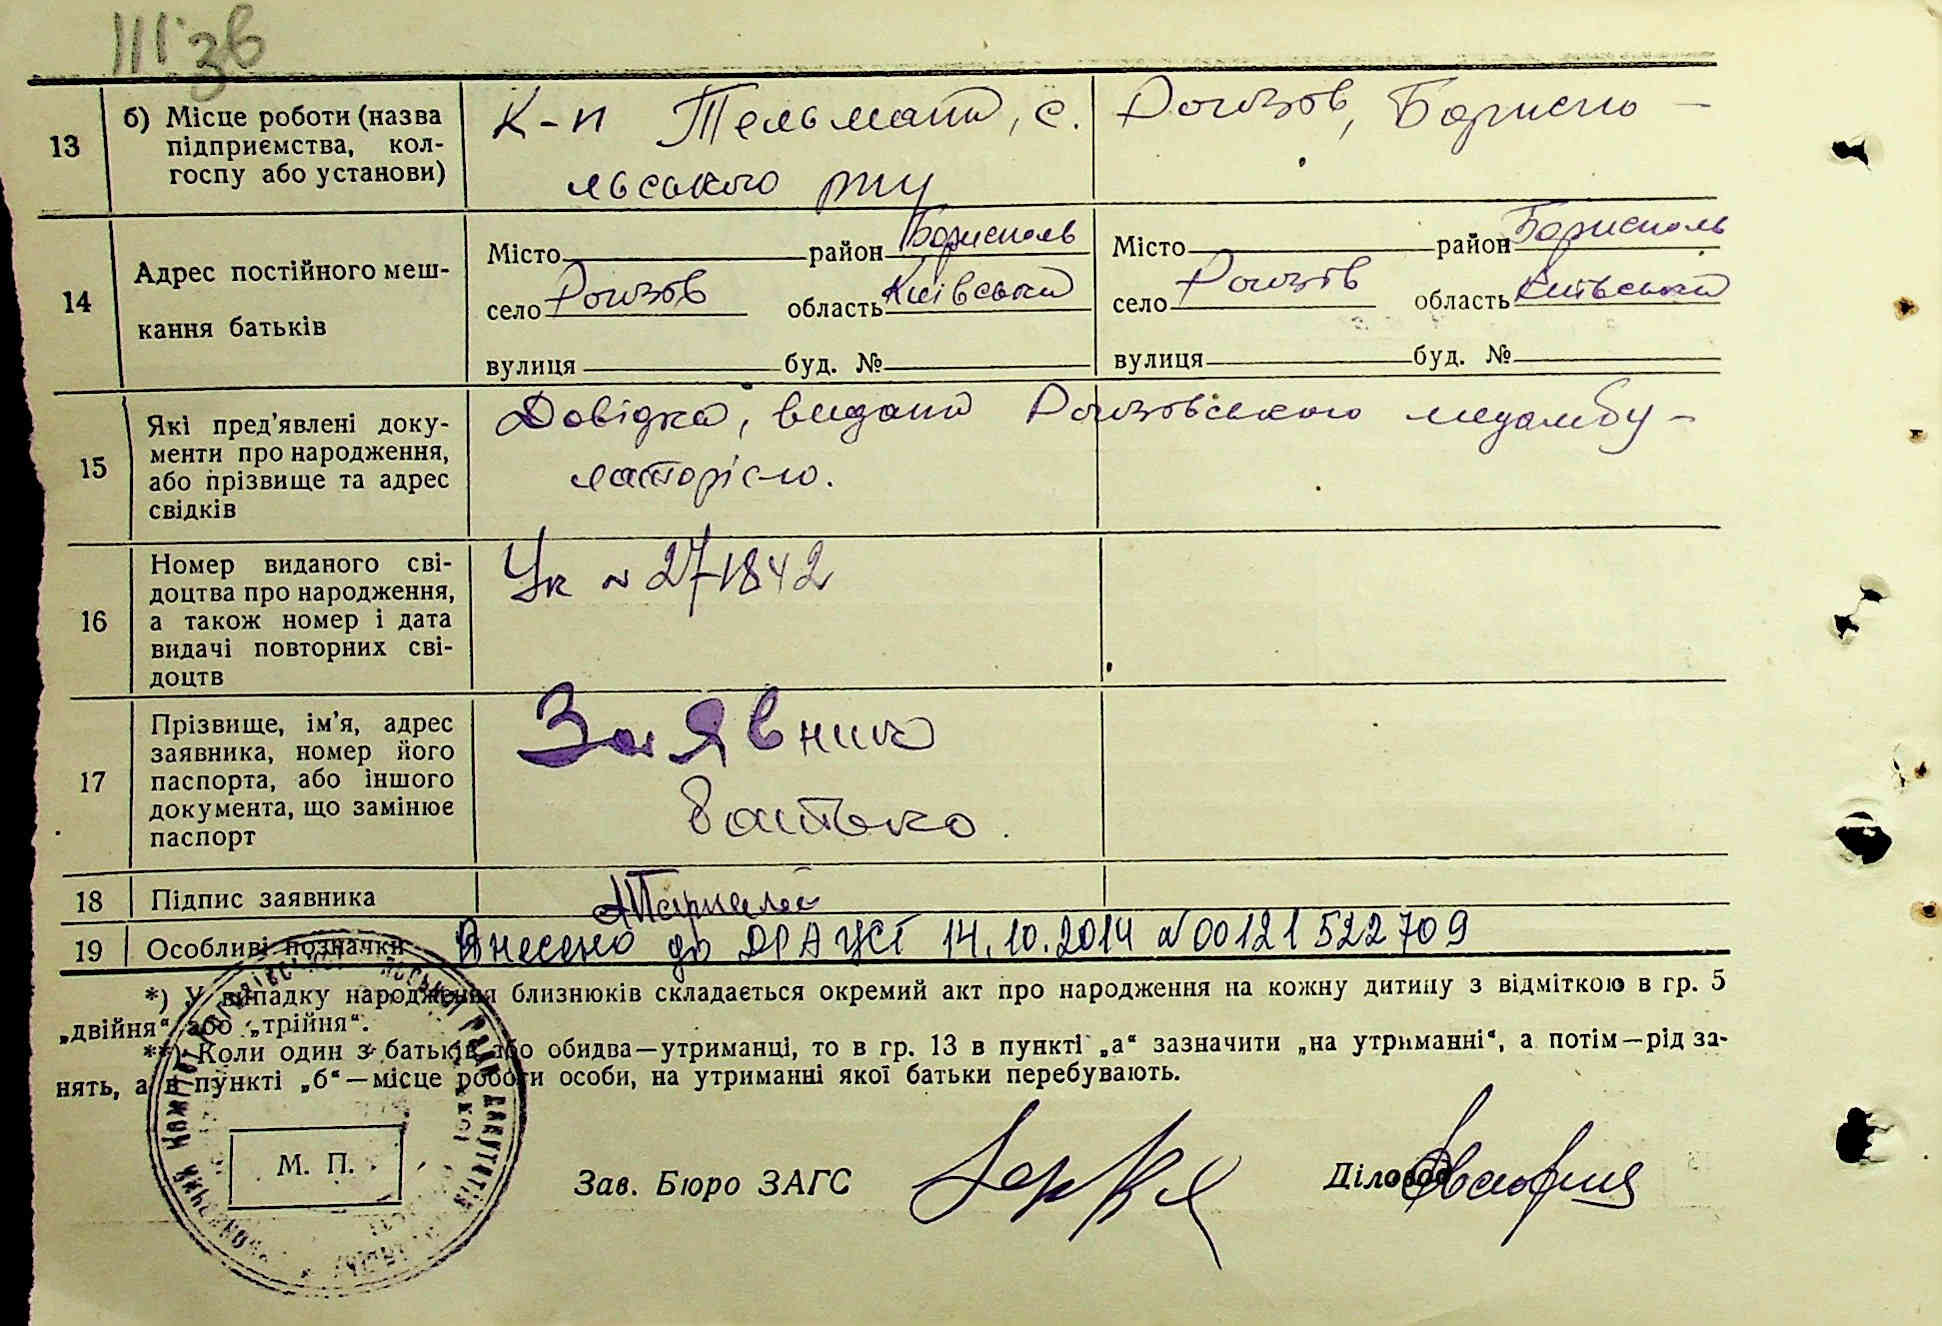 13
б) Місце роботи (назва
підприємства, кол-
госпу або установи)
К-п Тельмана, с. Рогозов, Бориспо-
льського р-ну
14
Адрес постійного меш-
кання батьків
Місто район Бориспіль
село Рогозов область Київська
вулиця буд. №
Місто район Бориспіль
село Рогозів область Київська
вулиця буд. №
15
Які пред'явлені доку-
менти про народження,
або прізвище та адрес
свідків
Довідка, видана Рогозовського медамбу-
латорією.
16
Номер виданого сві-
доцтва про народження,
а також номер і дата
видачі повторних сві-
доцтв
Ук № 271842
17
Прізвище, ім'я, адрес
заявника, номер його
паспорта, або іншого
документа, що замінює
паспорт
Заявник
батько.
18
Підпис заявника
19
Особливі позначки
Внесено до ДРАЦСГ 14.10.2014 №00121522709
*) У випадку народження близнюків складається окремий акт про народження на кожну дитину з відміткою в гр. 5
„двійня“ або „трійня“.
**) Коли один з батьків або обидва—утриманці, то в гр. 13 в пункті „а“ зазначити „на утриманні“, а потім—рід за-
нять, а в пункті „б“—місце роботи особи, на утриманні якої батьки перебувають.
М. П.
Зав. Бюро ЗАГС
Діловод